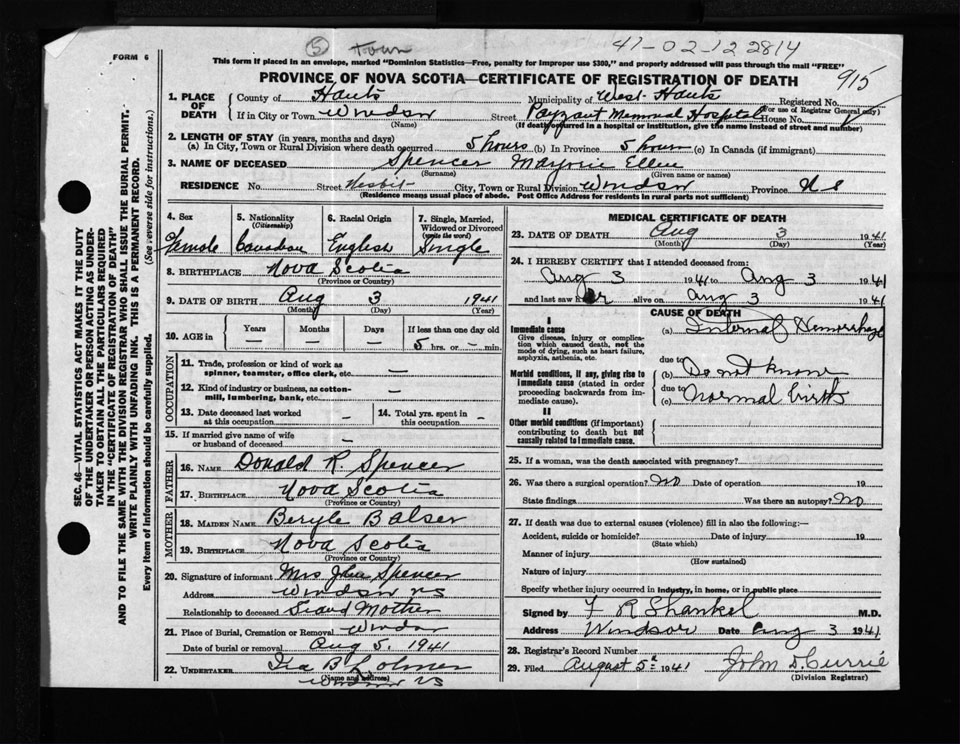 5 Town
41-02-122814
FORM 6
This form if placed in an envelope, marked "Dominion Statistics—Free, penalty for improper use $300," and properly addressed will pass through the mail "FREE"
PROVINCE OF NOVA SCOTIA—CERTIFICATE OF REGISTRATION OF DEATH
915
1. PLACE OF DEATH
County of Hants Municipality of West Hants Registered No.
(For use of Registrar General only)
If in City or Town Windsor Street Payzant Memorial Hospital House No.
(Name) (If death occurred in a hospital or institution, give the name instead of street and number)
2. LENGTH OF STAY (in years, months and days)
(a) In City, Town or Rural Division where death occurred 5 hours (b) In Province 5 hours (c) In Canada (if immigrant)
3. NAME OF DECEASED Spencer Marjorie Ellen
(Surname) (Given name or names)
RESIDENCE No. Street Nesbit City, Town or Rural Division Windsor Province NS
(Residence means usual place of abode. Post Office Address for residents in rural parts not sufficient)
4. Sex 5. Nationality (Citizenship) 6. Racial Origin 7. Single, Married, Widowed or Divorced (write the word)
Female Canadian English Single
8. BIRTHPLACE Nova Scotia
(Province or Country)
9. DATE OF BIRTH Aug 3 1941
(Month) (Day) (Year)
10. AGE in Years Months Days If less than one day old
5 hrs. or - min.
OCCUPATION
11. Trade, profession or kind of work as spinner, teamster, office clerk, etc. —
12. Kind of industry or business, as cotton-mill, lumbering, bank, etc. —
13. Date deceased last worked at this occupation - 14. Total yrs. spent in this occupation -
15. If married give name of wife or husband of deceased —
FATHER
16. NAME Donald R. Spencer
17. BIRTHPLACE Nova Scotia
(Province or Country)
MOTHER
18. MAIDEN NAME Beryle Balser
19. BIRTHPLACE Nova Scotia
(Province or Country)
20. Signature of informant Mrs John Spencer
Address Windsor NS
Relationship to deceased Grand Mother
21. Place of Burial, Cremation or Removal Windsor
Date of burial or removal Aug 5. 1941
22. UNDERTAKER Ira B
(Name and address)
Windsor NS
MEDICAL CERTIFICATE OF DEATH
23. DATE OF DEATH Aug 3 1941
(Month) (Day) (Year)
24. I HEREBY CERTIFY that I attended deceased from:
Aug 3 1941 to Aug 3 1941
and last saw her alive on Aug 3 1941
CAUSE OF DEATH
I
Immediate cause (a) Internal Hemorrhage
Give disease, injury or complication which caused death, not the mode of dying, such as heart failure, asphyxia, asthenia, etc.
due to
Morbid conditions, if any, giving rise to immediate cause (stated in order proceeding backwards from immediate cause).
(b) Do not know
due to
(c) Normal birth
II
Other morbid conditions (if important) contributing to death but not causally related to immediate cause.
25. If a woman, was the death associated with pregnancy?
26. Was there a surgical operation? No Date of operation 19
State findings Was there an autopsy? No
27. If death was due to external causes (violence) fill in also the following:—
Accident, suicide or homicide? Date of injury 19
(State which)
Manner of injury
(How sustained)
Nature of injury
Specify whether injury occurred in industry, in home, or in public place
Signed by F R Shankel M.D.
Address Windsor Date Aug 3 1941
28. Registrar's Record Number
29. Filed August 5th 1941 John D. Currie
(Division Registrar)
SEC. 46—VITAL STATISTICS ACT MAKES IT THE DUTY
OF THE UNDERTAKER OR PERSON ACTING AS UNDER-
TAKER TO OBTAIN ALL THE PARTICULARS REQUIRED
IN THE "CERTIFICATE OF REGISTRATION OF DEATH"
AND TO FILE THE SAME WITH THE DIVISION REGISTRAR WHO SHALL ISSUE THE BURIAL PERMIT.
WRITE PLAINLY WITH UNFADING INK. THIS IS A PERMANENT RECORD.
Every item of information should be carefully supplied. (See reverse side for instructions.)